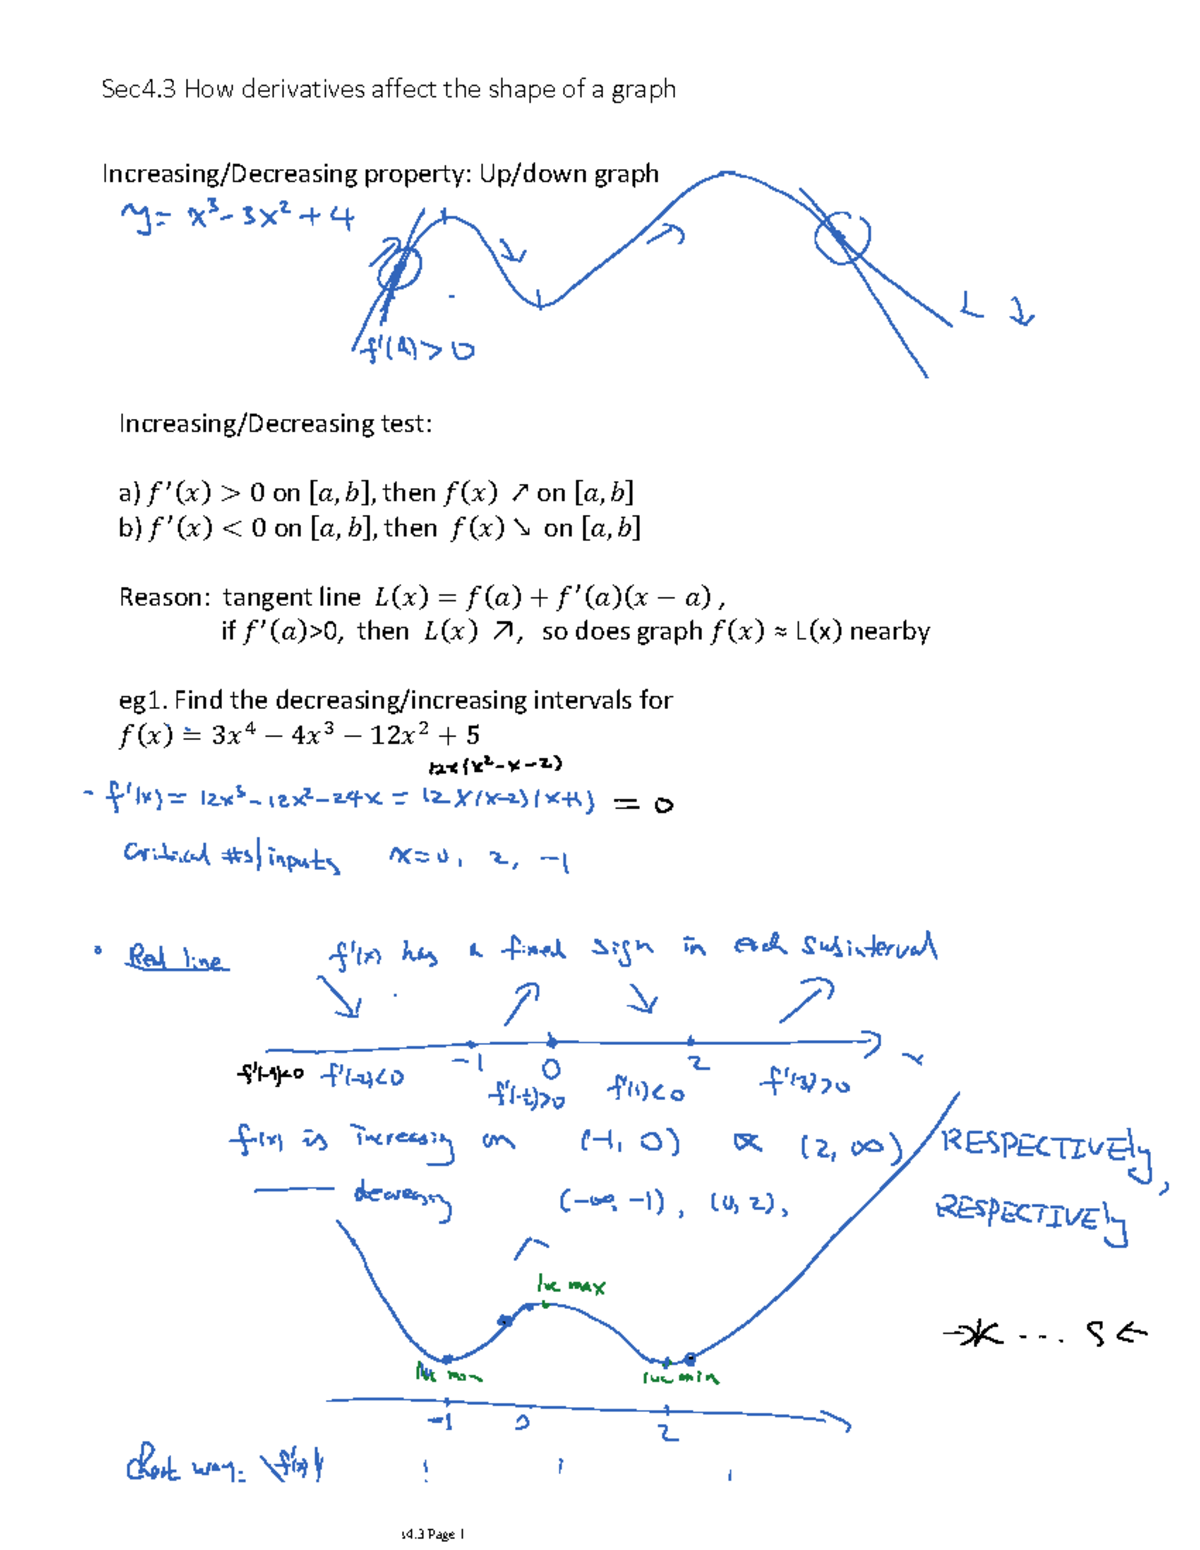 Sec4.3 How derivatives affect the shape of a graph
Increasing/Decreasing property: Up/down graph
y = x³ - 3x² + 4
L ↓
f'(a) > 0
Increasing/Decreasing test:
a) f′(x) > 0 on [a, b], then f(x) ↗ on [a, b]
b) f′(x) < 0 on [a, b], then f(x) ↘ on [a, b]
Reason: tangent line L(x) = f(a) + f′(a)(x − a) ,
if f′(a)>0, then L(x) ↗, so does graph f(x) ≈ L(x) nearby
eg1. Find the decreasing/increasing intervals for
f(x) = 3x⁴ − 4x³ − 12x² + 5
12x(x²-x-2)
- f'(x) = 12x³ - 12x² - 24x = 12x(x-2)(x+1) = 0
Critical #s/inputs x=0, 2, -1
Real line f'(x) has a fixed sign in each subinterval
↘ ↗ ↘ ↗
-1 0 2 x
f'(-2)<0 f'(1)<0 f'(3)>0
f(x) is increasing on (-1, 0) & (2, ∞) RESPECTIVEly,
decreasing (-∞, -1), (0, 2), RESPECTIVEly
loc max
loc min loc min
-1 0 2
Chart way: f'(x)
s4.3 Page 1